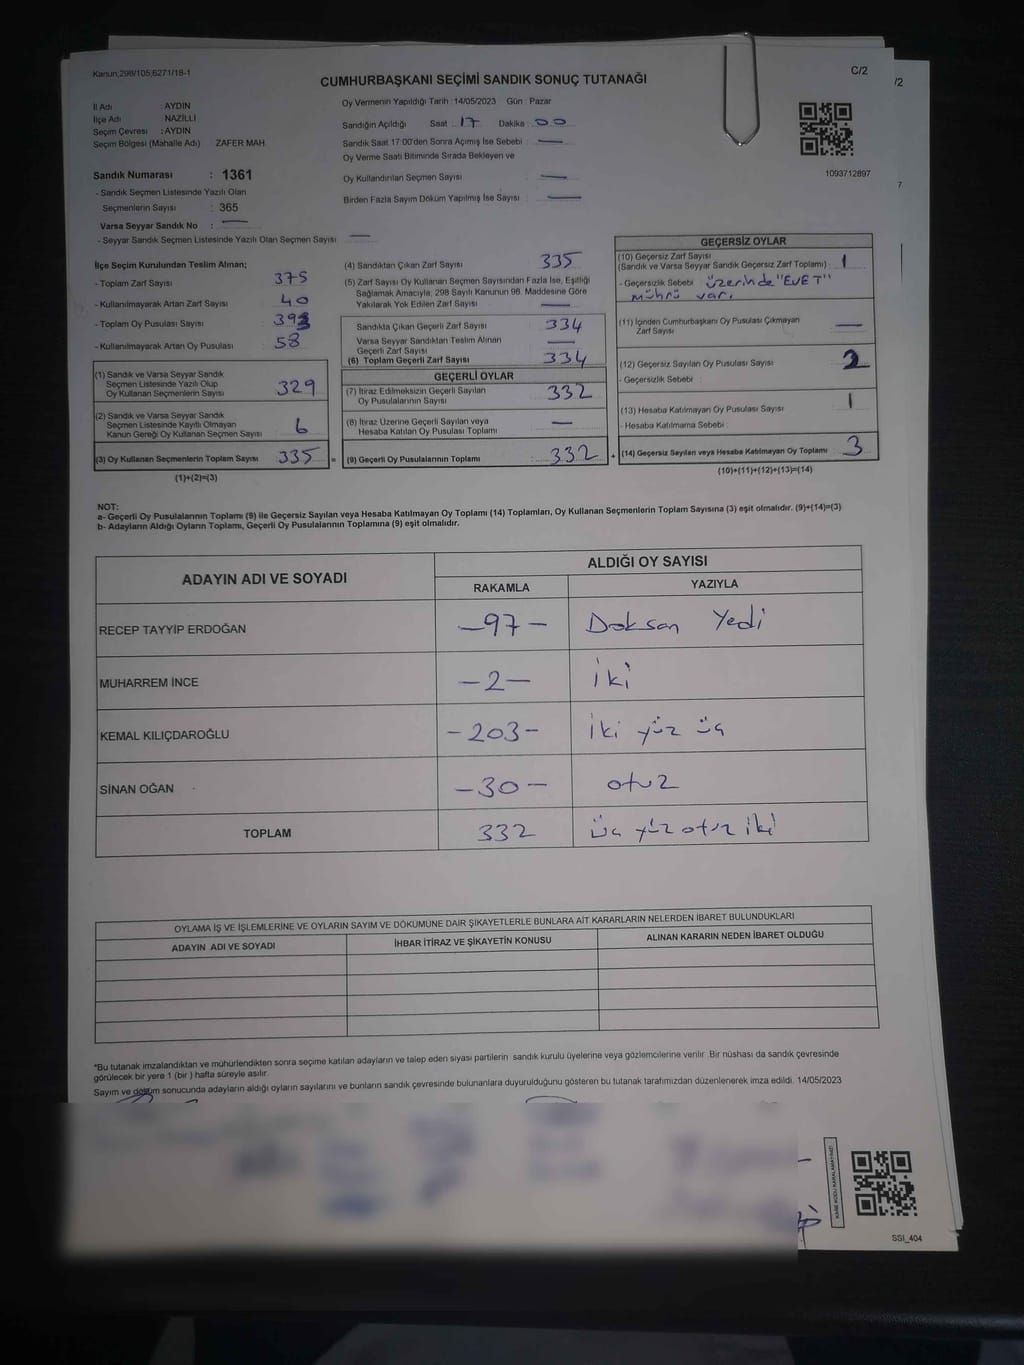 Kanun;298/105,6271/18-1
CUMHURBAŞKANI SEÇİMİ SANDIK SONUÇ TUTANAĞI
C/2
/2
İl Adı : AYDIN
İlçe Adı NAZİLLİ
Seçim Çevresi : AYDIN
Seçim Bölgesi (Mahalle Adı) ZAFER MAH
Sandık Numarası : 1361
- Sandık Seçmen Listesinde Yazılı Olan
Seçmenlerin Sayısı : 365
Varsa Seyyar Sandık No : —
- Seyyar Sandık Seçmen Listesinde Yazılı Olan Seçmen Sayısı —
Oy Vermenin Yapıldığı Tarih : 14/05/2023 Gün : Pazar
Sandığın Açıldığı Saat : 17 Dakika : 00
Sandık Saat 17:00'den Sonra Açımış İse Sebebi : —
Oy Verme Saati Bitiminde Sırada Bekleyen ve
Oy Kullandırılan Seçmen Sayısı —
Birden Fazla Sayım Döküm Yapılmış İse Sayısı —
1093712897
7
İlçe Seçim Kurulundan Teslim Alınan;
- Toplam Zarf Sayısı 375
- Kullanılmayarak Artan Zarf Sayısı : 40
- Toplam Oy Pusulası Sayısı : 393
- Kullanılmayarak Artan Oy Pusulası : 58
(1) Sandık ve Varsa Seyyar Sandık
Seçmen Listesinde Yazılı Olup
Oy Kullanan Seçmenlerin Sayısı 329
(2) Sandık ve Varsa Seyyar Sandık
Seçmen Listesinde Kayıtlı Olmayan
Kanun Gereği Oy Kullanan Seçmen Sayısı 6
(3) Oy Kullanan Seçmenlerin Toplam Sayısı 335 =
(1)+(2)=(3)
(4) Sandıktan Çıkan Zarf Sayısı 335
(5) Zarf Sayısı Oy Kullanan Seçmen Sayısından Fazla İse, Eşitliği
Sağlamak Amacıyla; 298 Sayılı Kanunun 98. Maddesine Göre
Yakılarak Yok Edilen Zarf Sayısı —
Sandıkta Çıkan Geçerli Zarf Sayısı : 334
Varsa Seyyar Sandıktan Teslim Alınan
Geçerli Zarf Sayısı —
(6) Toplam Geçerli Zarf Sayısı 334
GEÇERLİ OYLAR
(7) İtiraz Edilmeksizin Geçerli Sayılan
Oy Pusulalarının Sayısı 332
(8) İtiraz Üzerine Geçerli Sayılan veya
Hesaba Katılan Oy Pusulası Toplamı —
(9) Geçerli Oy Pusulalarının Toplamı 332 +
GEÇERSİZ OYLAR
(10) Geçersiz Zarf Sayısı
(Sandık ve Varsa Seyyar Sandık Geçersiz Zarf Toplamı) : 1
- Geçersizlik Sebebi : üzerinde "EVET"
mührü var.
(11) İçinden Cumhurbaşkanı Oy Pusulası Çıkmayan
Zarf Sayısı —
(12) Geçersiz Sayılan Oy Pusulası Sayısı : 2
- Geçersizlik Sebebi :
(13) Hesaba Katılmayan Oy Pusulası Sayısı : 1
- Hesaba Katılmama Sebebi :
(14) Geçersiz Sayılan veya Hesaba Katılmayan Oy Toplamı : 3
(10)+(11)+(12)+(13)=(14)
NOT:
a- Geçerli Oy Pusulalarının Toplamı (9) ile Geçersiz Sayılan veya Hesaba Katılmayan Oy Toplamı (14) Toplamları, Oy Kullanan Seçmenlerin Toplam Sayısına (3) eşit olmalıdır. (9)+(14)=(3)
b- Adayların Aldığı Oyların Toplamı, Geçerli Oy Pusulalarının Toplamına (9) eşit olmalıdır.
ADAYIN ADI VE SOYADI
ALDIĞI OY SAYISI
RAKAMLA YAZIYLA
RECEP TAYYİP ERDOĞAN –97– Doksan Yedi
MUHARREM İNCE –2– iki
KEMAL KILIÇDAROĞLU –203– iki yüz üç
SİNAN OĞAN –30– otuz
TOPLAM 332 üç yüz otuz iki
OYLAMA İŞ VE İŞLEMLERİNE VE OYLARIN SAYIM VE DÖKÜMÜNE DAİR ŞİKAYETLERLE BUNLARA AİT KARARLARIN NELERDEN İBARET BULUNDUKLARI
ADAYIN ADI VE SOYADI İHBAR İTİRAZ VE ŞİKAYETİN KONUSU ALINAN KARARIN NEDEN İBARET OLDUĞU
*Bu tutanak imzalandıktan ve mühürlendikten sonra seçime katılan adayların ve talep eden siyasi partilerin sandık kurulu üyelerine veya gözlemcilerine verilir. Bir nüshası da sandık çevresinde
görülecek bir yere 1 (bir ) hafta süreyle asılır.
Sayım ve döküm sonucunda adayların aldığı oyların sayılarını ve bunların sandık çevresinde bulunanlara duyurulduğunu gösteren bu tutanak tarafımızdan düzenlenerek imza edildi. 14/05/2023
KARE KODU KARALAMAYINIZ!
SSI_404